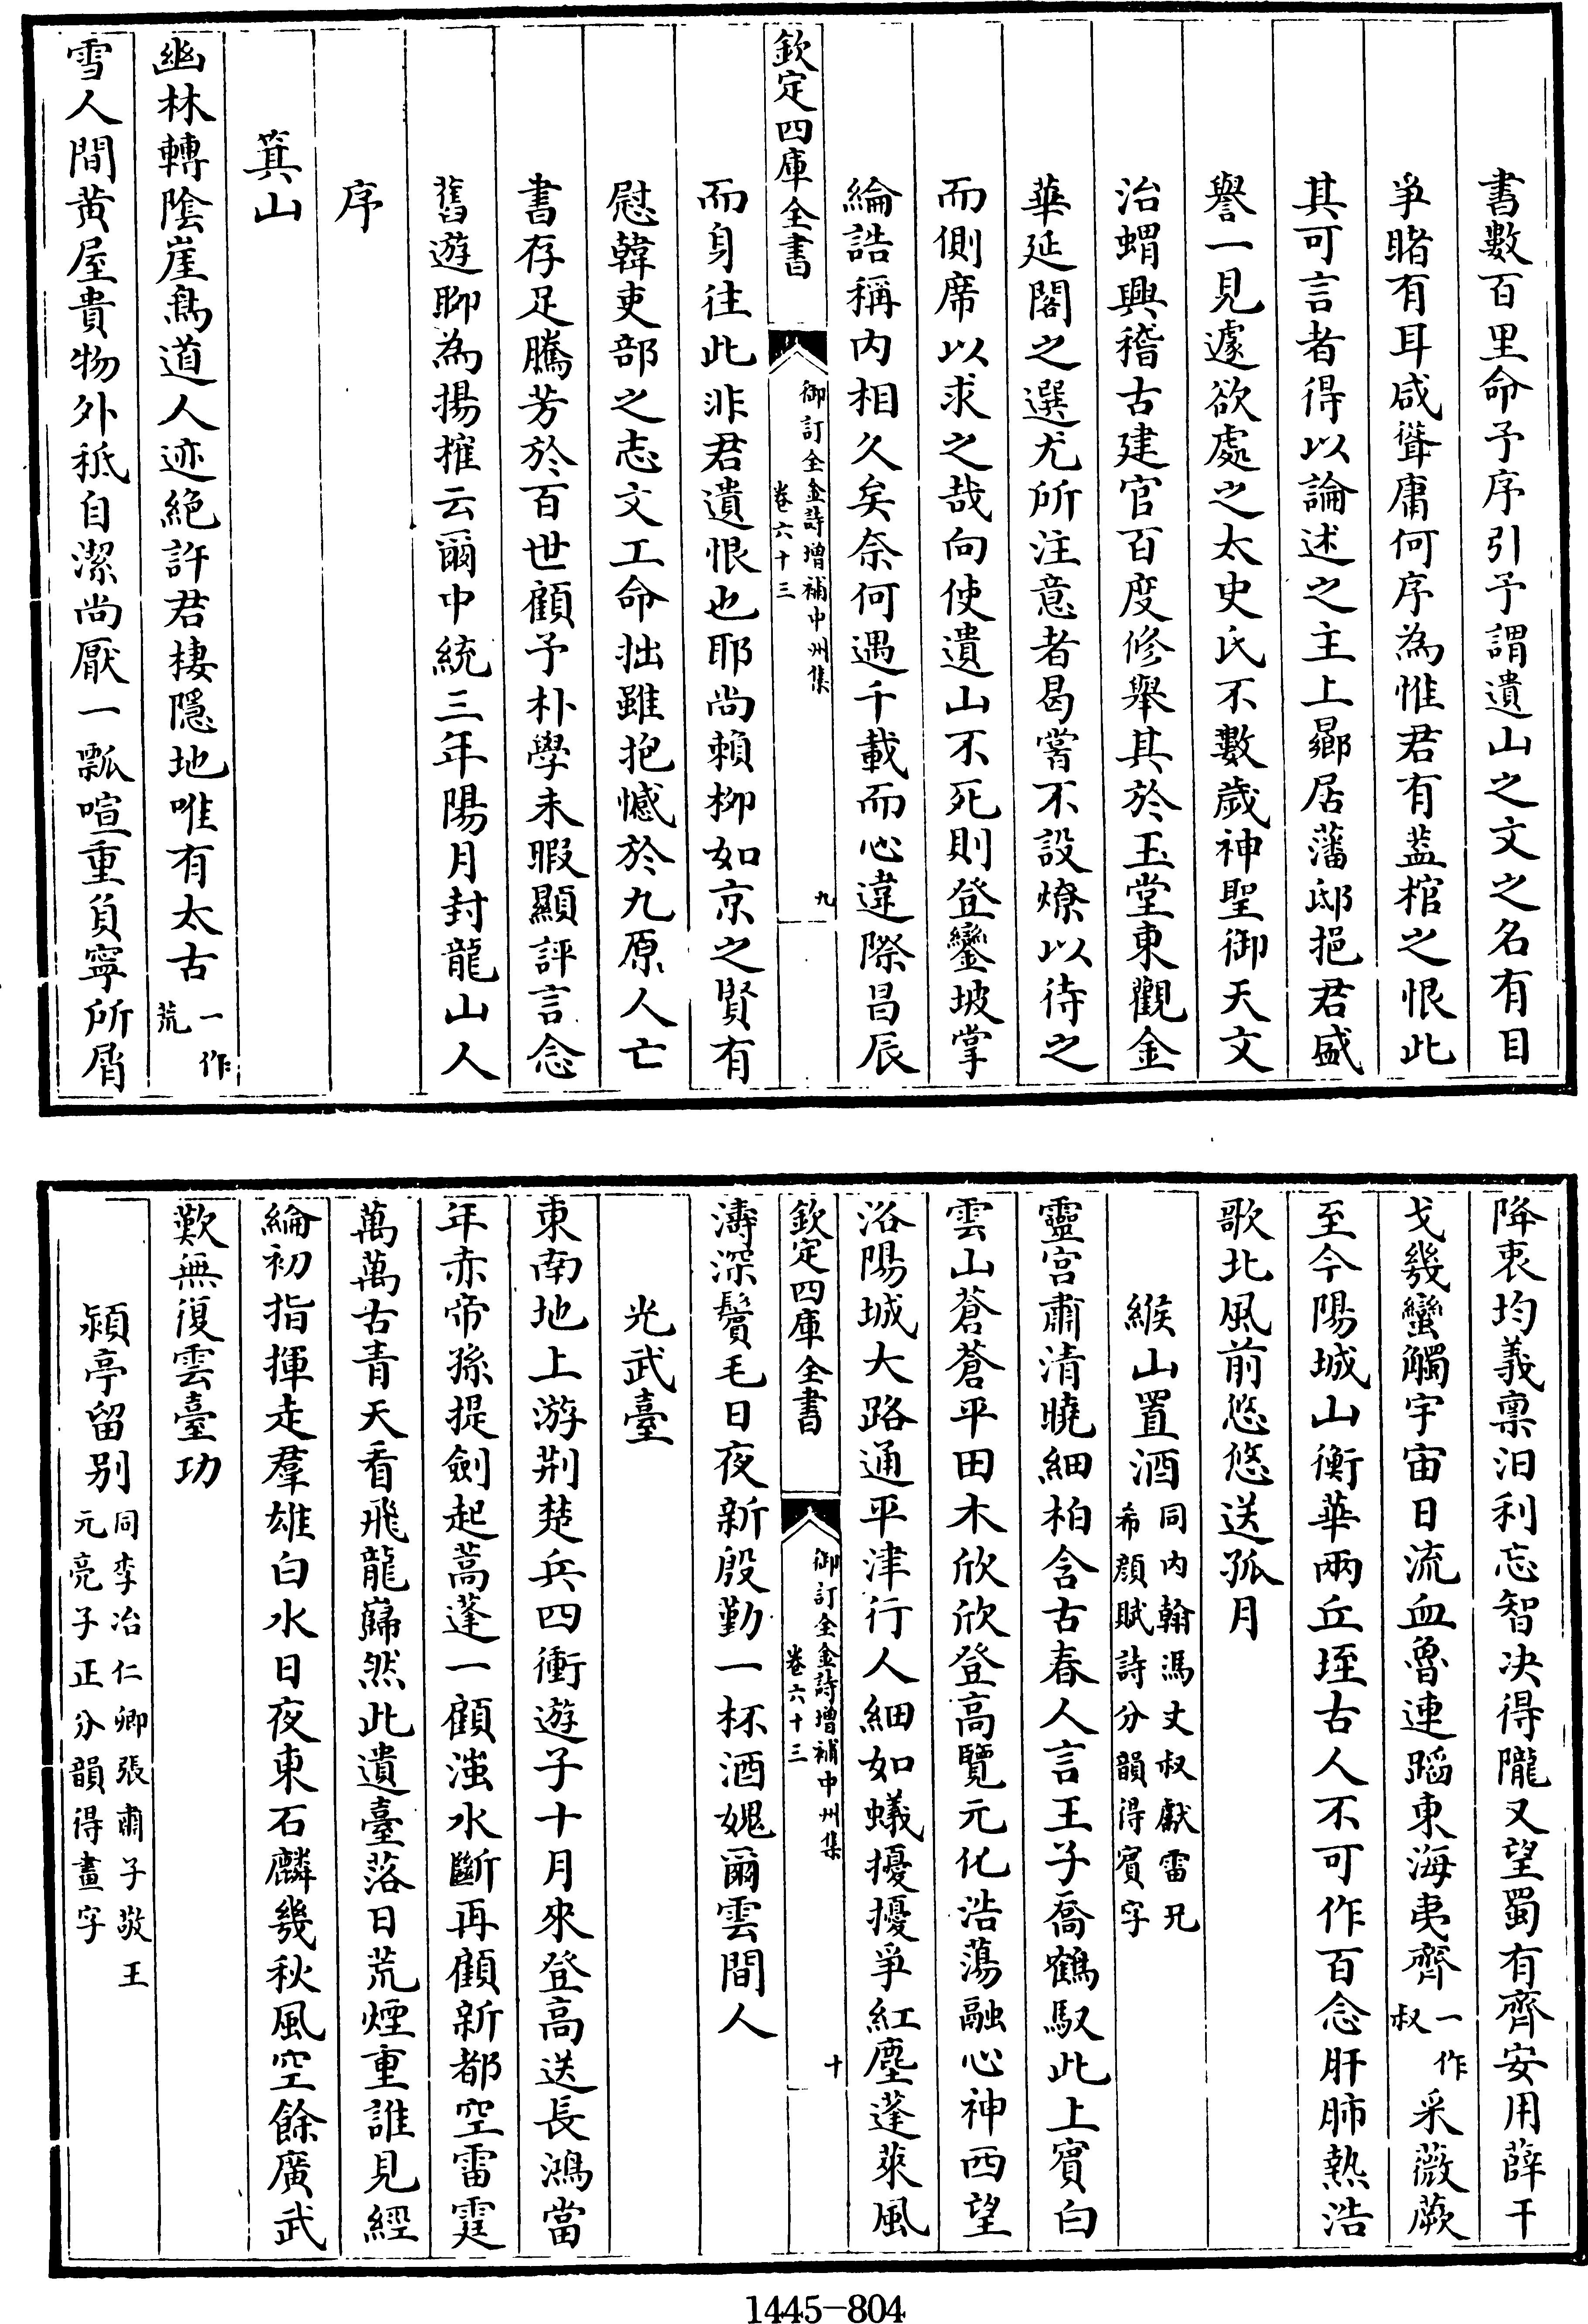 書數百里命予序引予謂遺山之文之名有目
爭睹有耳咸聳庸何序為惟君有蓋棺之恨此
其可言者得以論述之主上曏居藩邸挹君盛
譽一見遽欲處之太史氏不數歲神聖御天文
治蝟興稽古建官百度修舉其於玉堂東觀金
華延閣之選尤所注意者曷嘗不設燎以待之
而側席以求之哉向使遺山不死則登鑾坡掌
綸誥稱内相久矣奈何遇千載而心違際昌辰
欽定四庫全書
御訂全金詩增補中州集
卷六十三
九
而身往此非君遺恨也耶尚賴柳如京之賢有
慰韓吏部之志文工命拙雖抱憾於九原人亡
書存足騰芳於百世顧予朴學未暇顯評言念
舊遊聊為揚搉云爾中統三年陽月封龍山人
序
箕山
幽林轉陰崖鳥道人迹絶許君棲隱地唯有太古一作荒
雪人間黄屋貴物外秪自潔尚厭一瓢喧重負寧所屑
降衷均義禀汩利忘智决得隴又望蜀有齊安用薛干
戈幾蠻觸宇宙日流血魯連蹈東海夷齊一作叔采薇蕨
至今陽城山衡華兩丘垤古人不可作百念肝肺熱浩
歌北風前悠悠送孤月
緱山置酒同内翰馮丈叔獻雷兄希顔賦詩分韻得賓字
靈宫肅清曉細柏含古春人言王子喬鶴馭此上賓白
雲山蒼蒼平田木欣欣登高覽元化浩蕩融心神西望
洛陽城大路通平津行人細如蟻擾擾爭紅塵蓬萊風
欽定四庫全書
御訂全金詩增補中州集
卷六十三
十
濤深鬢毛日夜新殷勤一杯酒媿爾雲間人
光武臺
東南地上游荆楚兵四衝遊子十月來登高送長鴻當
年赤帝孫提劍起蒿蓬一顧滍水斷再顧新都空雷霆
萬萬古青天看飛龍巋然此遺臺落日荒煙重誰見經
綸初指揮走羣雄白水日夜東石麟幾秋風空餘廣武
歎無復雲臺功
潁亭留别同李冶仁卿張肅子敬王元亮子正分韻得畫字
1445-804